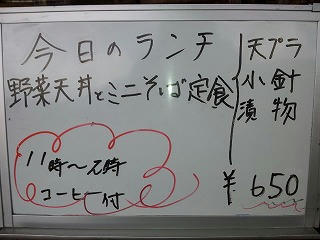 今日のランチ
野菜天丼とミニそば定食
天プラ
小針
漬物
11時～2時
コーヒー付
¥650